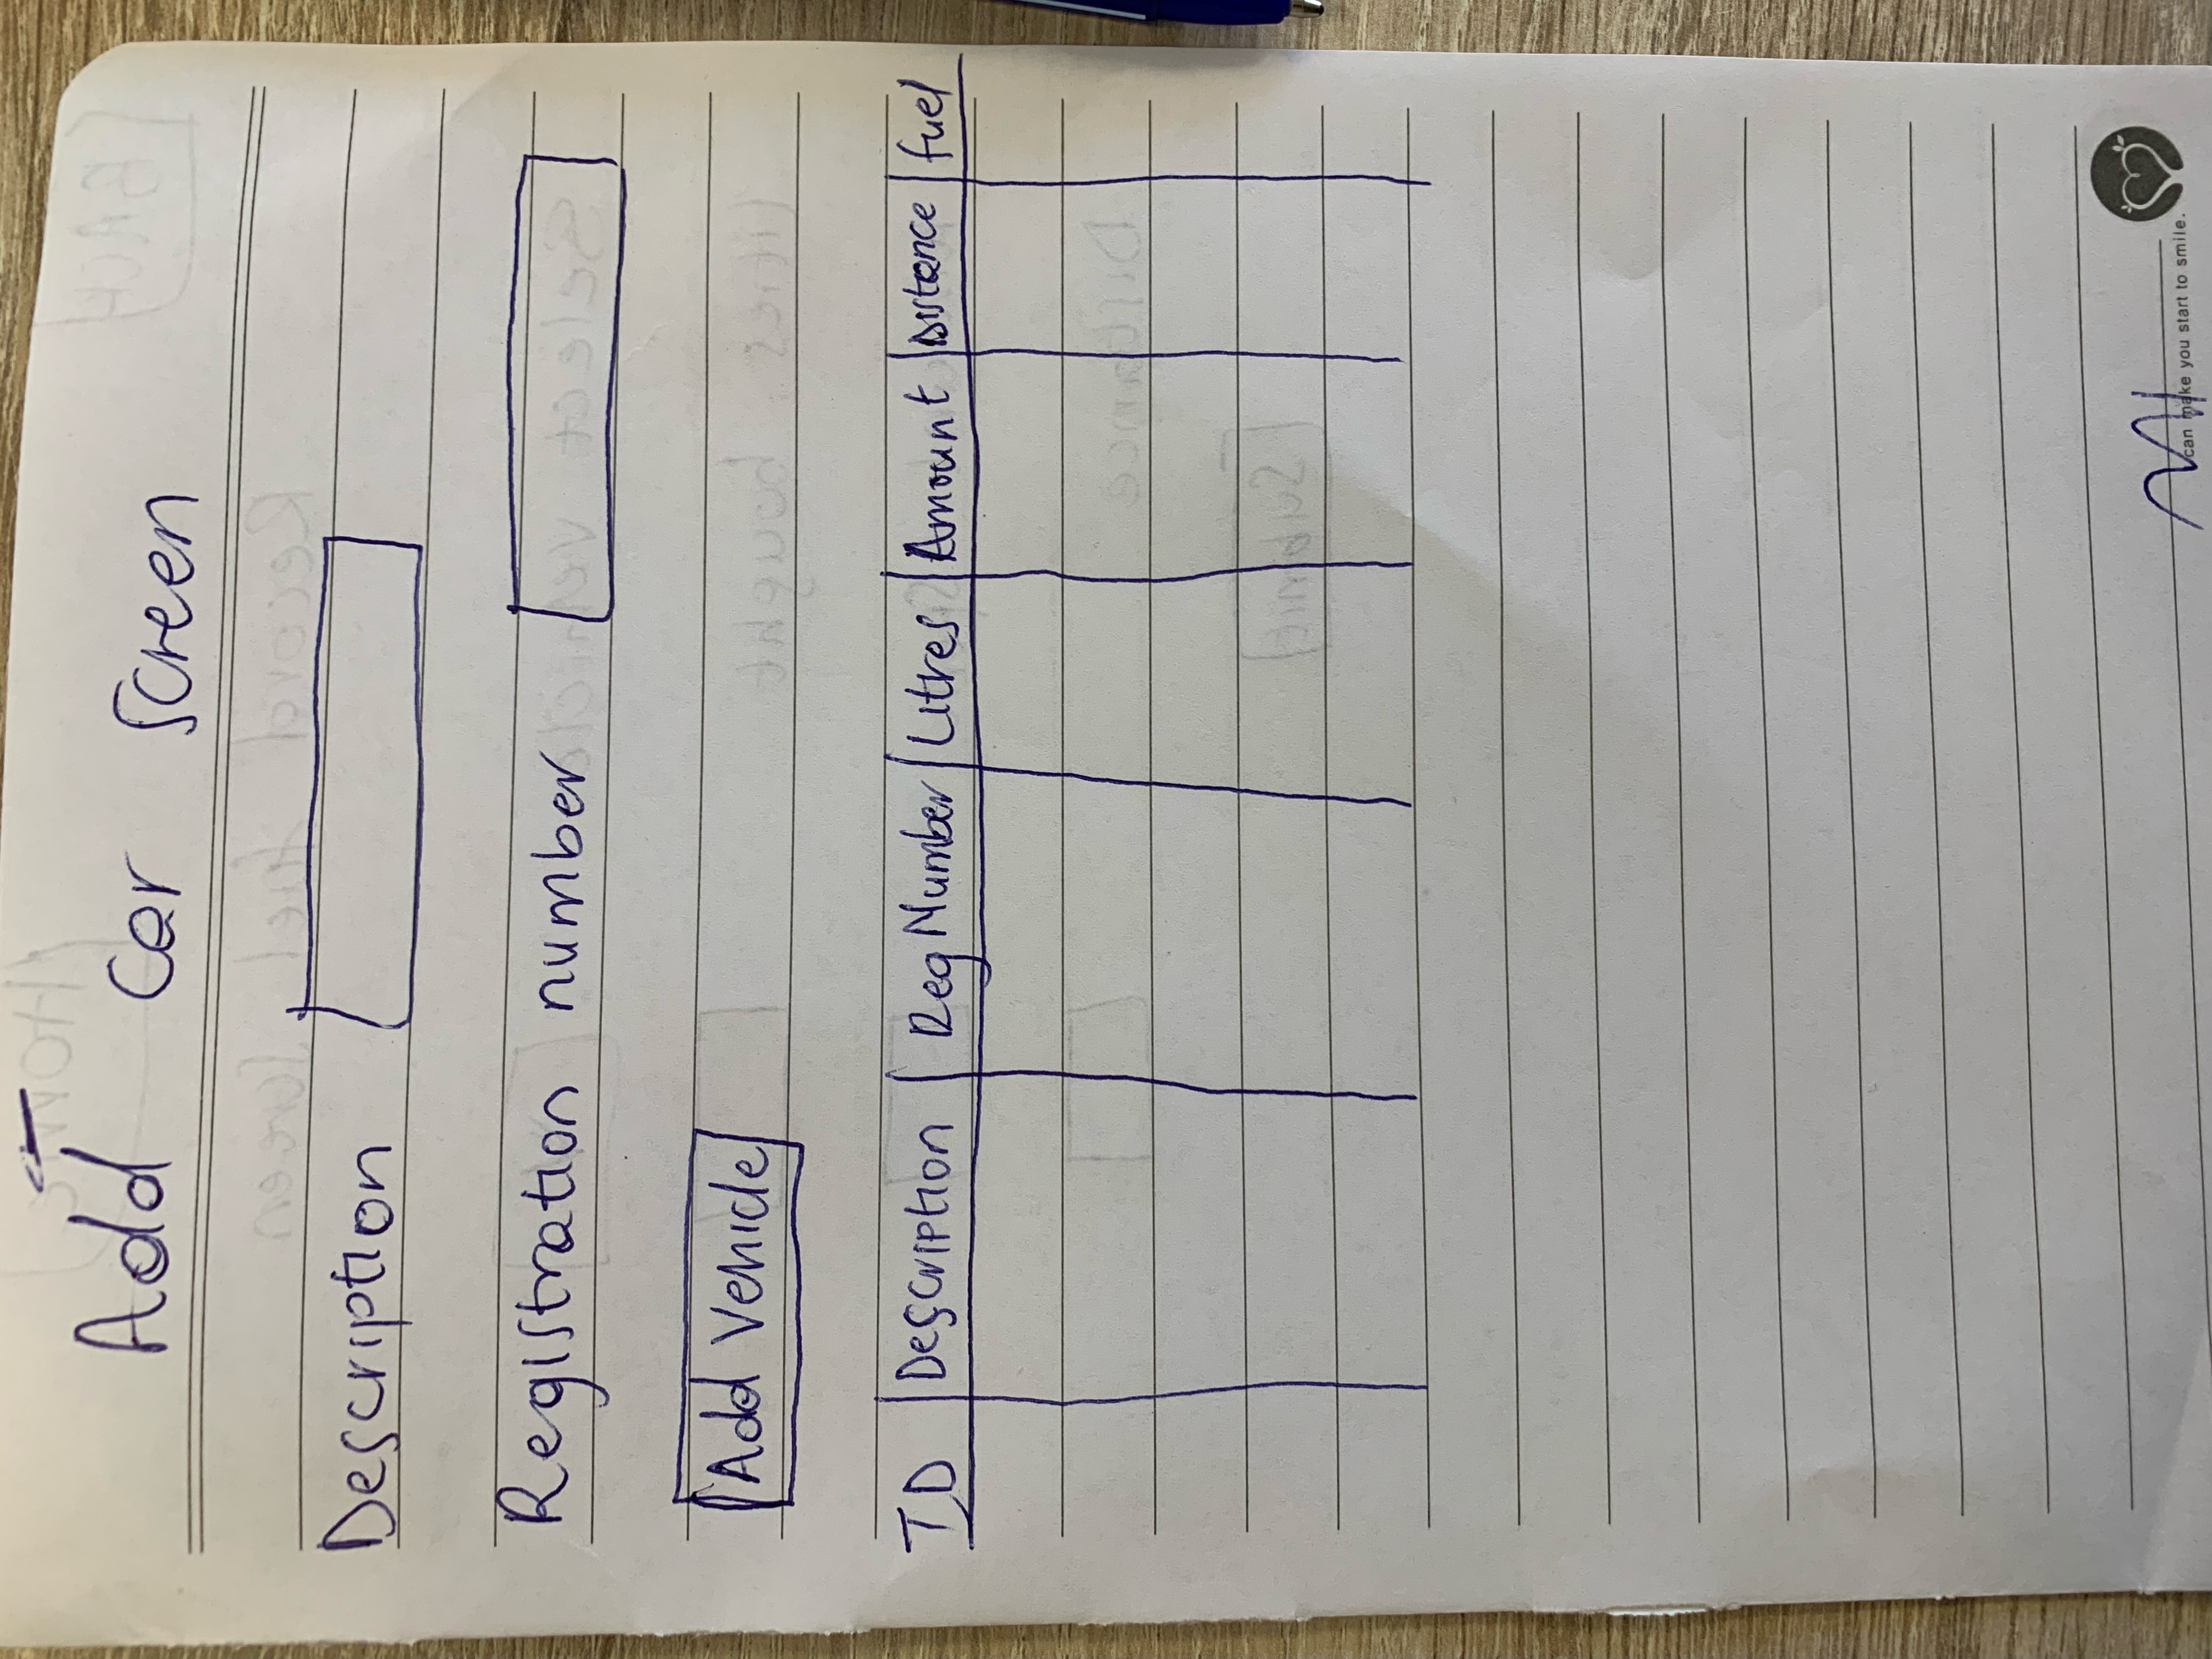 Add Car Screen
Description
Registration number
Add Vehicle
ID Description Reg Number Litres Amount Distance fuel
can make you start to smile.